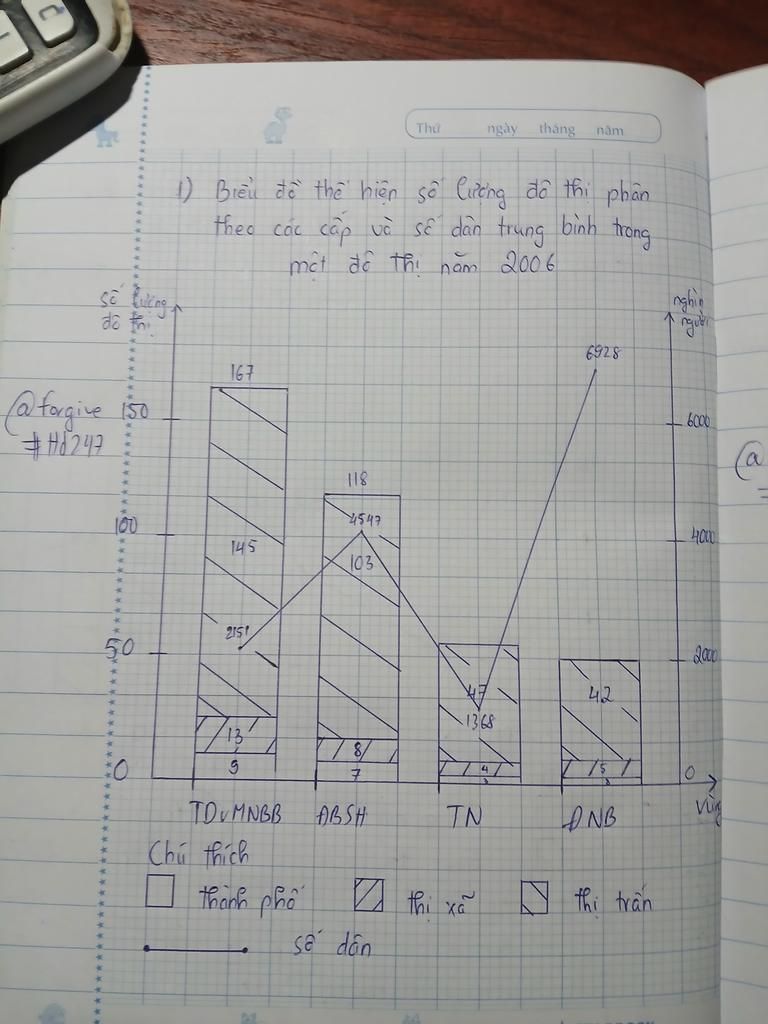 Thứ ngày tháng năm
1) Biểu đồ thể hiện số lượng đô thị phân
theo các cấp và số dân trung bình trong
một đô thị năm 2006
số lượng
đô thị
nghìn
người
6928
167
@forgive
#Hd247
150
6000
118
4547
100
4000
145
103
2151
50
2000
47
42
1368
13
8
4
5
9
7
0
0
TDvMNBB ĐBSH TN ĐNB vùng
Chú thích
thành phố thị xã thị trấn
số dân